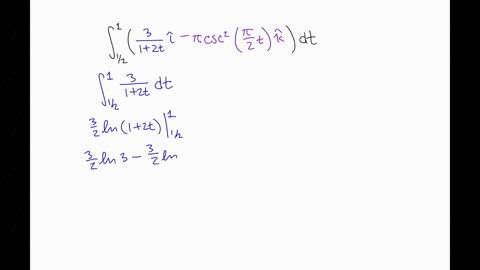 ∫_{1/2}^{1} ( 3/(1+2t) î − π csc² (π/2 t) k̂ ) dt
∫_{1/2}^{1} 3/(1+2t) dt
3/2 ln (1+2t) |_{1/2}^{1}
3/2 ln 3 − 3/2 ln